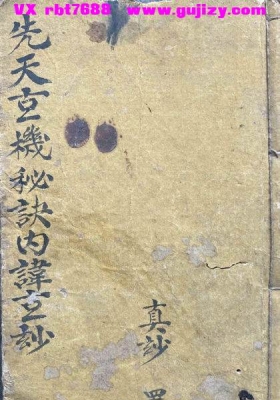 VX rbt7688 www.gujizy.com
先天玄機秘訣内諱玄妙
真妙